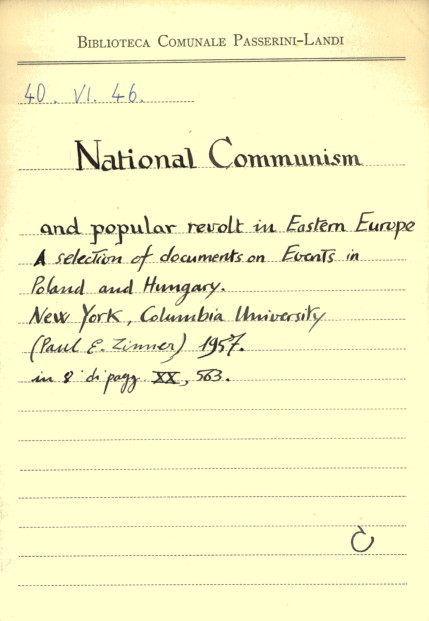 BIBLIOTECA COMUNALE PASSERINI-LANDI
40. VI. 46.
National Communism
and popular revolt in Eastern Europe
A selection of documents on Events in
Poland and Hungary.
New York, Columbia University
(Paul E. Zinner) 1957.
in 8° di pagg. XX, 563.
C